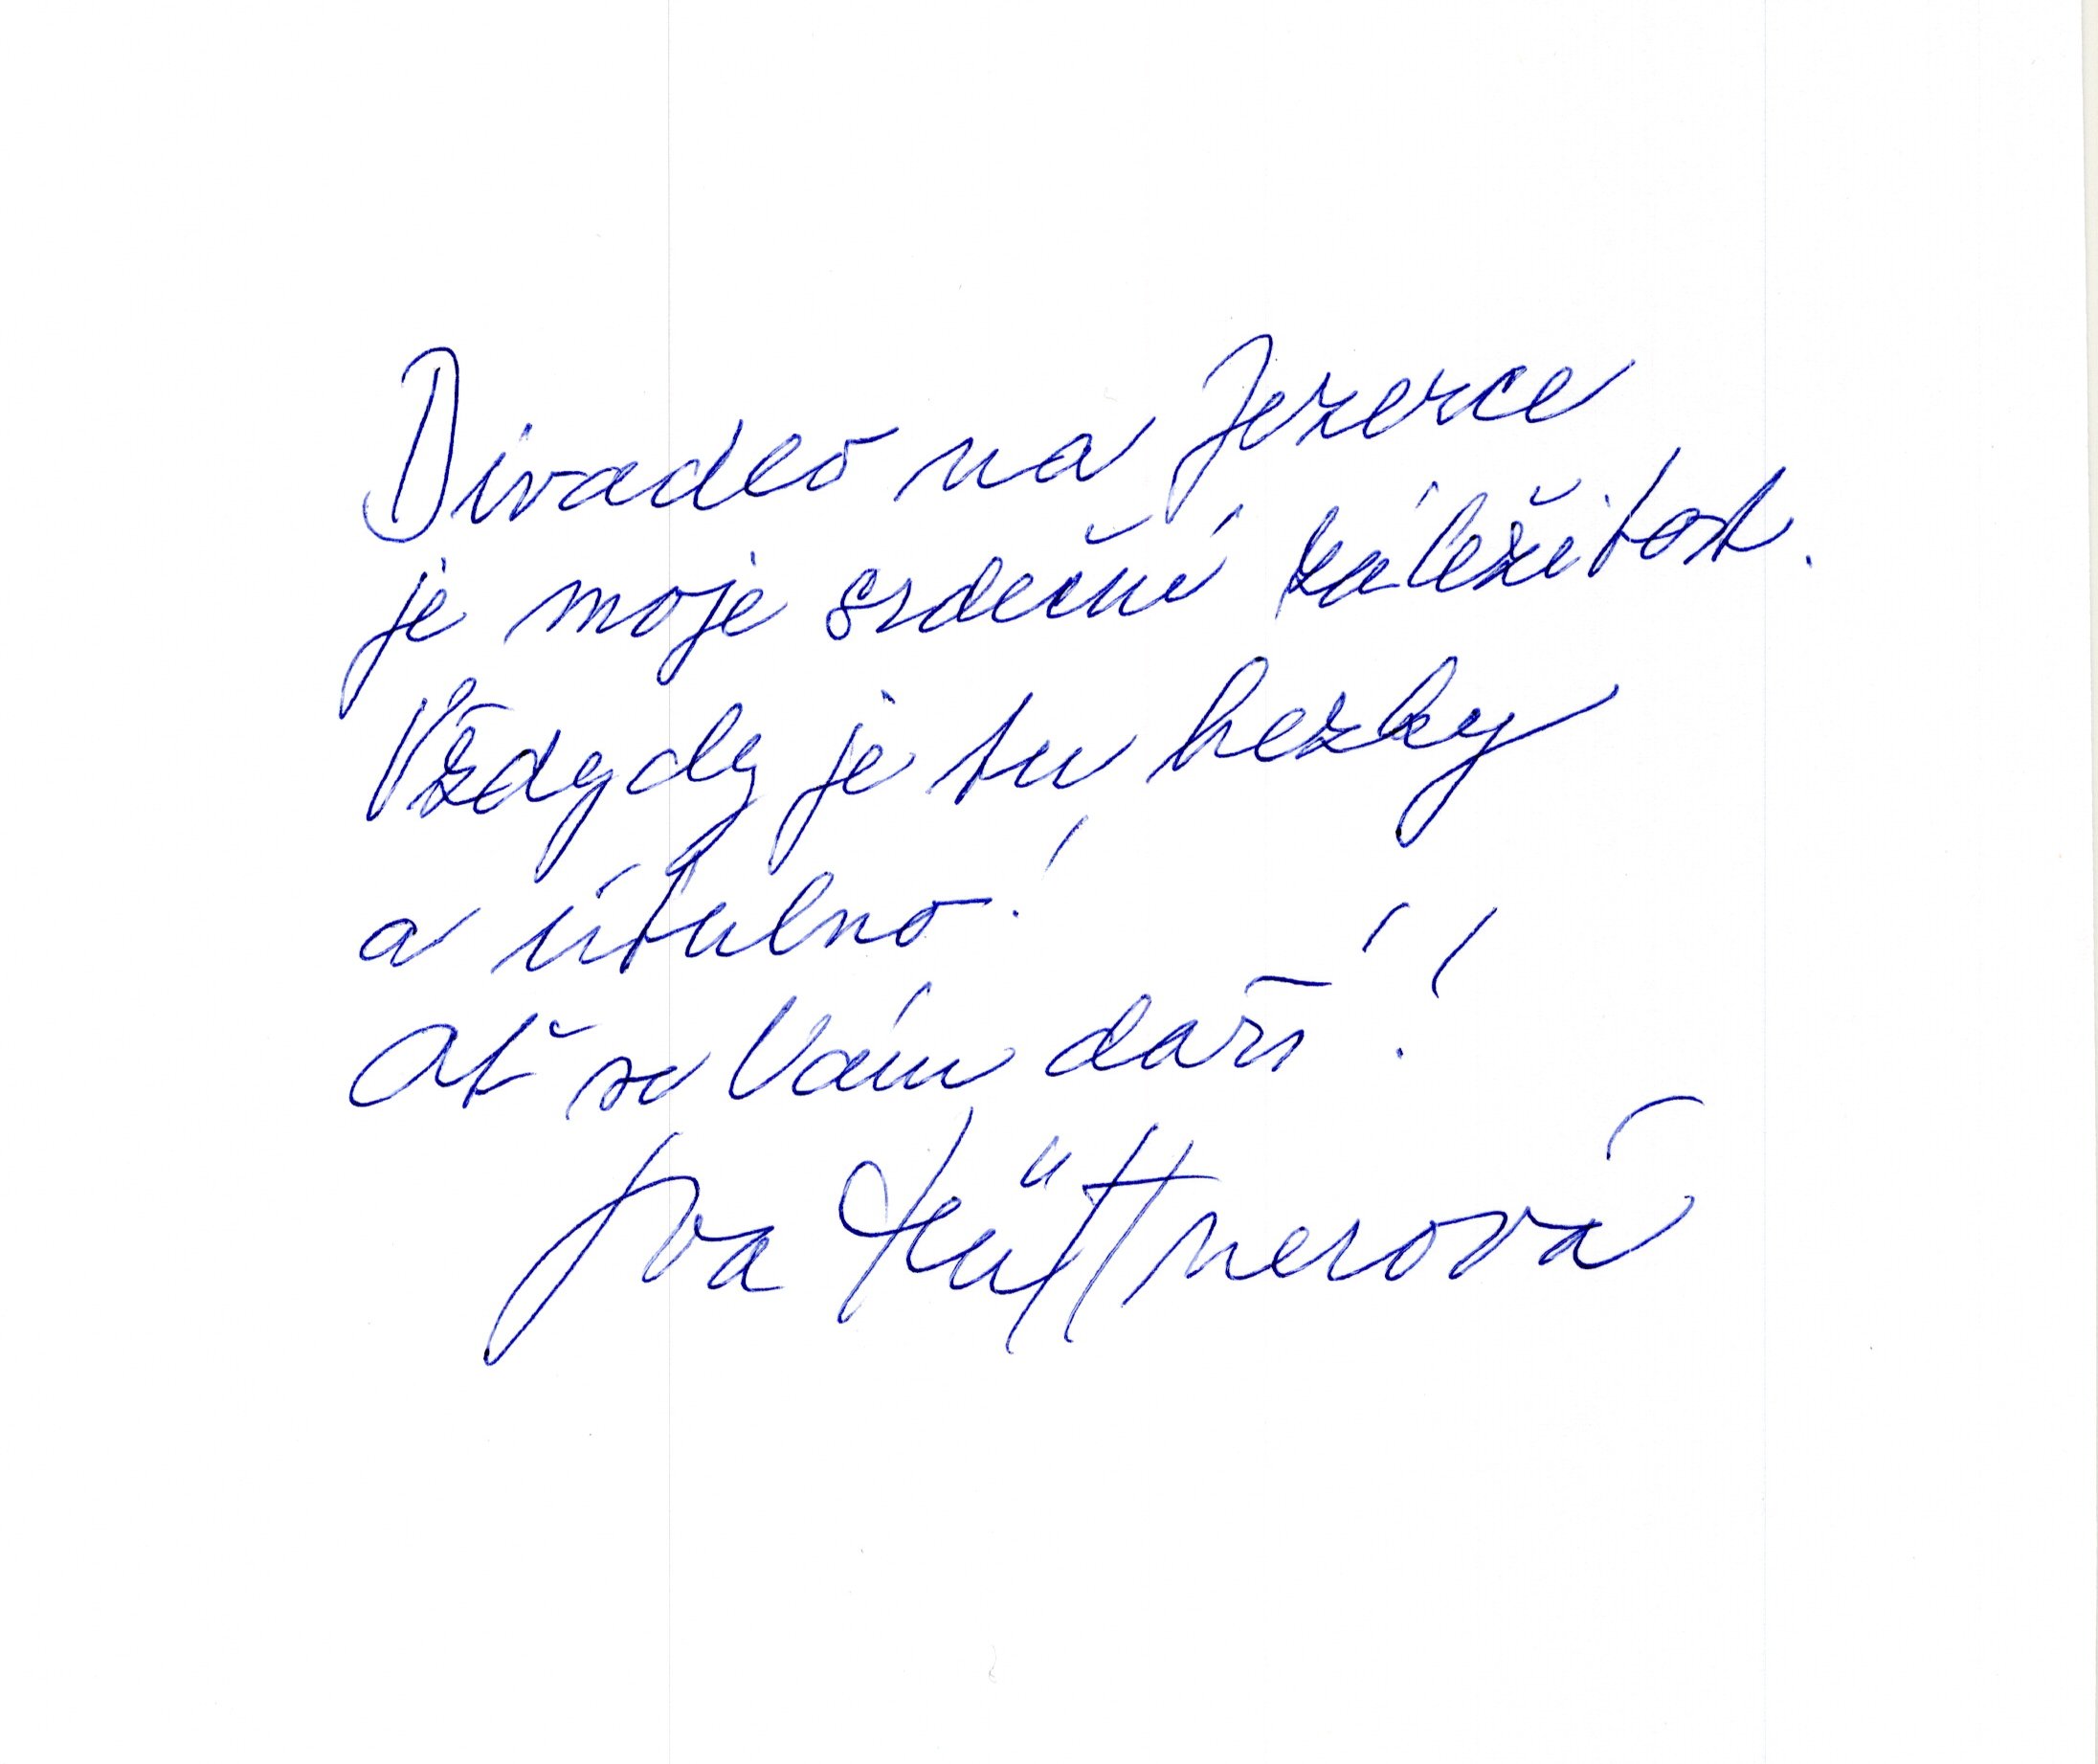 Divadlo na Jezerce
je moje srdeční záležitost.
Vždycky je tu hezky
a útulno!
Ať se Vám daří!
Iva Hüttnerová